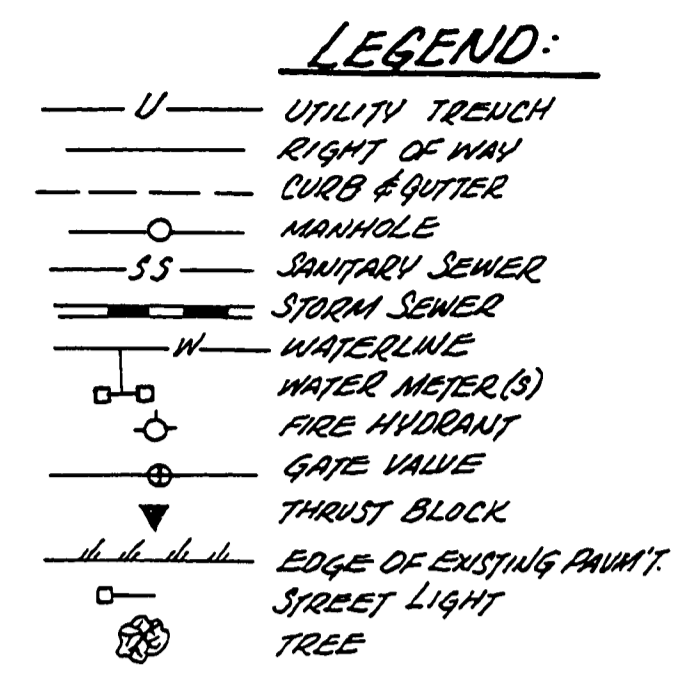 LEGEND:
U UTILITY TRENCH
RIGHT OF WAY
CURB & GUTTER
MANHOLE
SS SANITARY SEWER
STORM SEWER
W WATERLINE
WATER METER(S)
FIRE HYDRANT
GATE VALVE
THRUST BLOCK
EDGE OF EXISTING PAVM'T.
STREET LIGHT
TREE